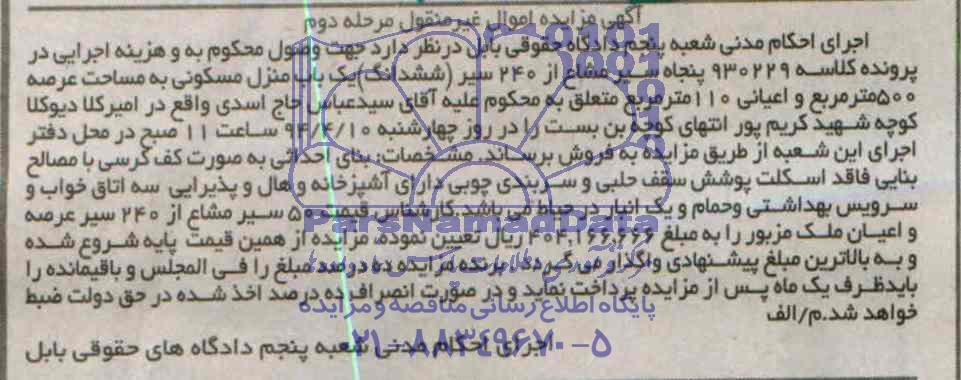 آگهی مزایده اموال غیرمنقول مرحله دوم
اجرای احکام مدنی شعبه پنجم دادگاه حقوقی بابل درنظر دارد جهت وصول محکوم به و هزینه اجرایی در
پرونده کلاسه ۹۳۰۲۲۹ پنجاه سیر مشاع از ۲۴۰ سیر (ششدانگ) یک باب منزل مسکونی به مساحت عرصه
۵۰۰مترمربع و اعیانی ۱۱۰مترمربع متعلق به محکوم علیه آقای سیدعباس حاج اسدی واقع در امیرکلا دیوکلا
کوچه شهید کریم پور انتهای کوچه بن بست را در روز چهارشنبه ۹۴/۴/۱۰ ساعت ۱۱ صبح در محل دفتر
اجرای این شعبه از طریق مزایده به فروش برساند. مشخصات: بنای احداثی به صورت کف کرسی با مصالح
بنایی فاقد اسکلت پوشش سقف حلبی و سربندی چوبی دارای آشپزخانه و هال و پذیرایی سه اتاق خواب و
سرویس بهداشتی وحمام و یک انبار در حیاط می باشد. کارشناس قیمت ۵۰ سیر مشاع از ۲۴۰ سیر عرصه
و اعیان ملک مزبور را به مبلغ ۴۰۴,۱۶۶,۶۶۶ ریال تعیین نموده، مزایده از همین قیمت پایه شروع شده
و به بالاترین مبلغ پیشنهادی واگذار می گردد. برنده مزایده ده درصد مبلغ را فی المجلس و باقیمانده را
بایدظرف یک ماه پس از مزایده پرداخت نماید و در صورت انصراف ده درصد اخذ شده در حق دولت ضبط
خواهد شد.م/الف
اجرای احکام مدنی شعبه پنجم دادگاه های حقوقی بابل
ParsNamadData
پایگاه اطلاع رسانی مناقصه و مزایده
۰۲۱-۸۸۳۴۹۶۷۰-۵